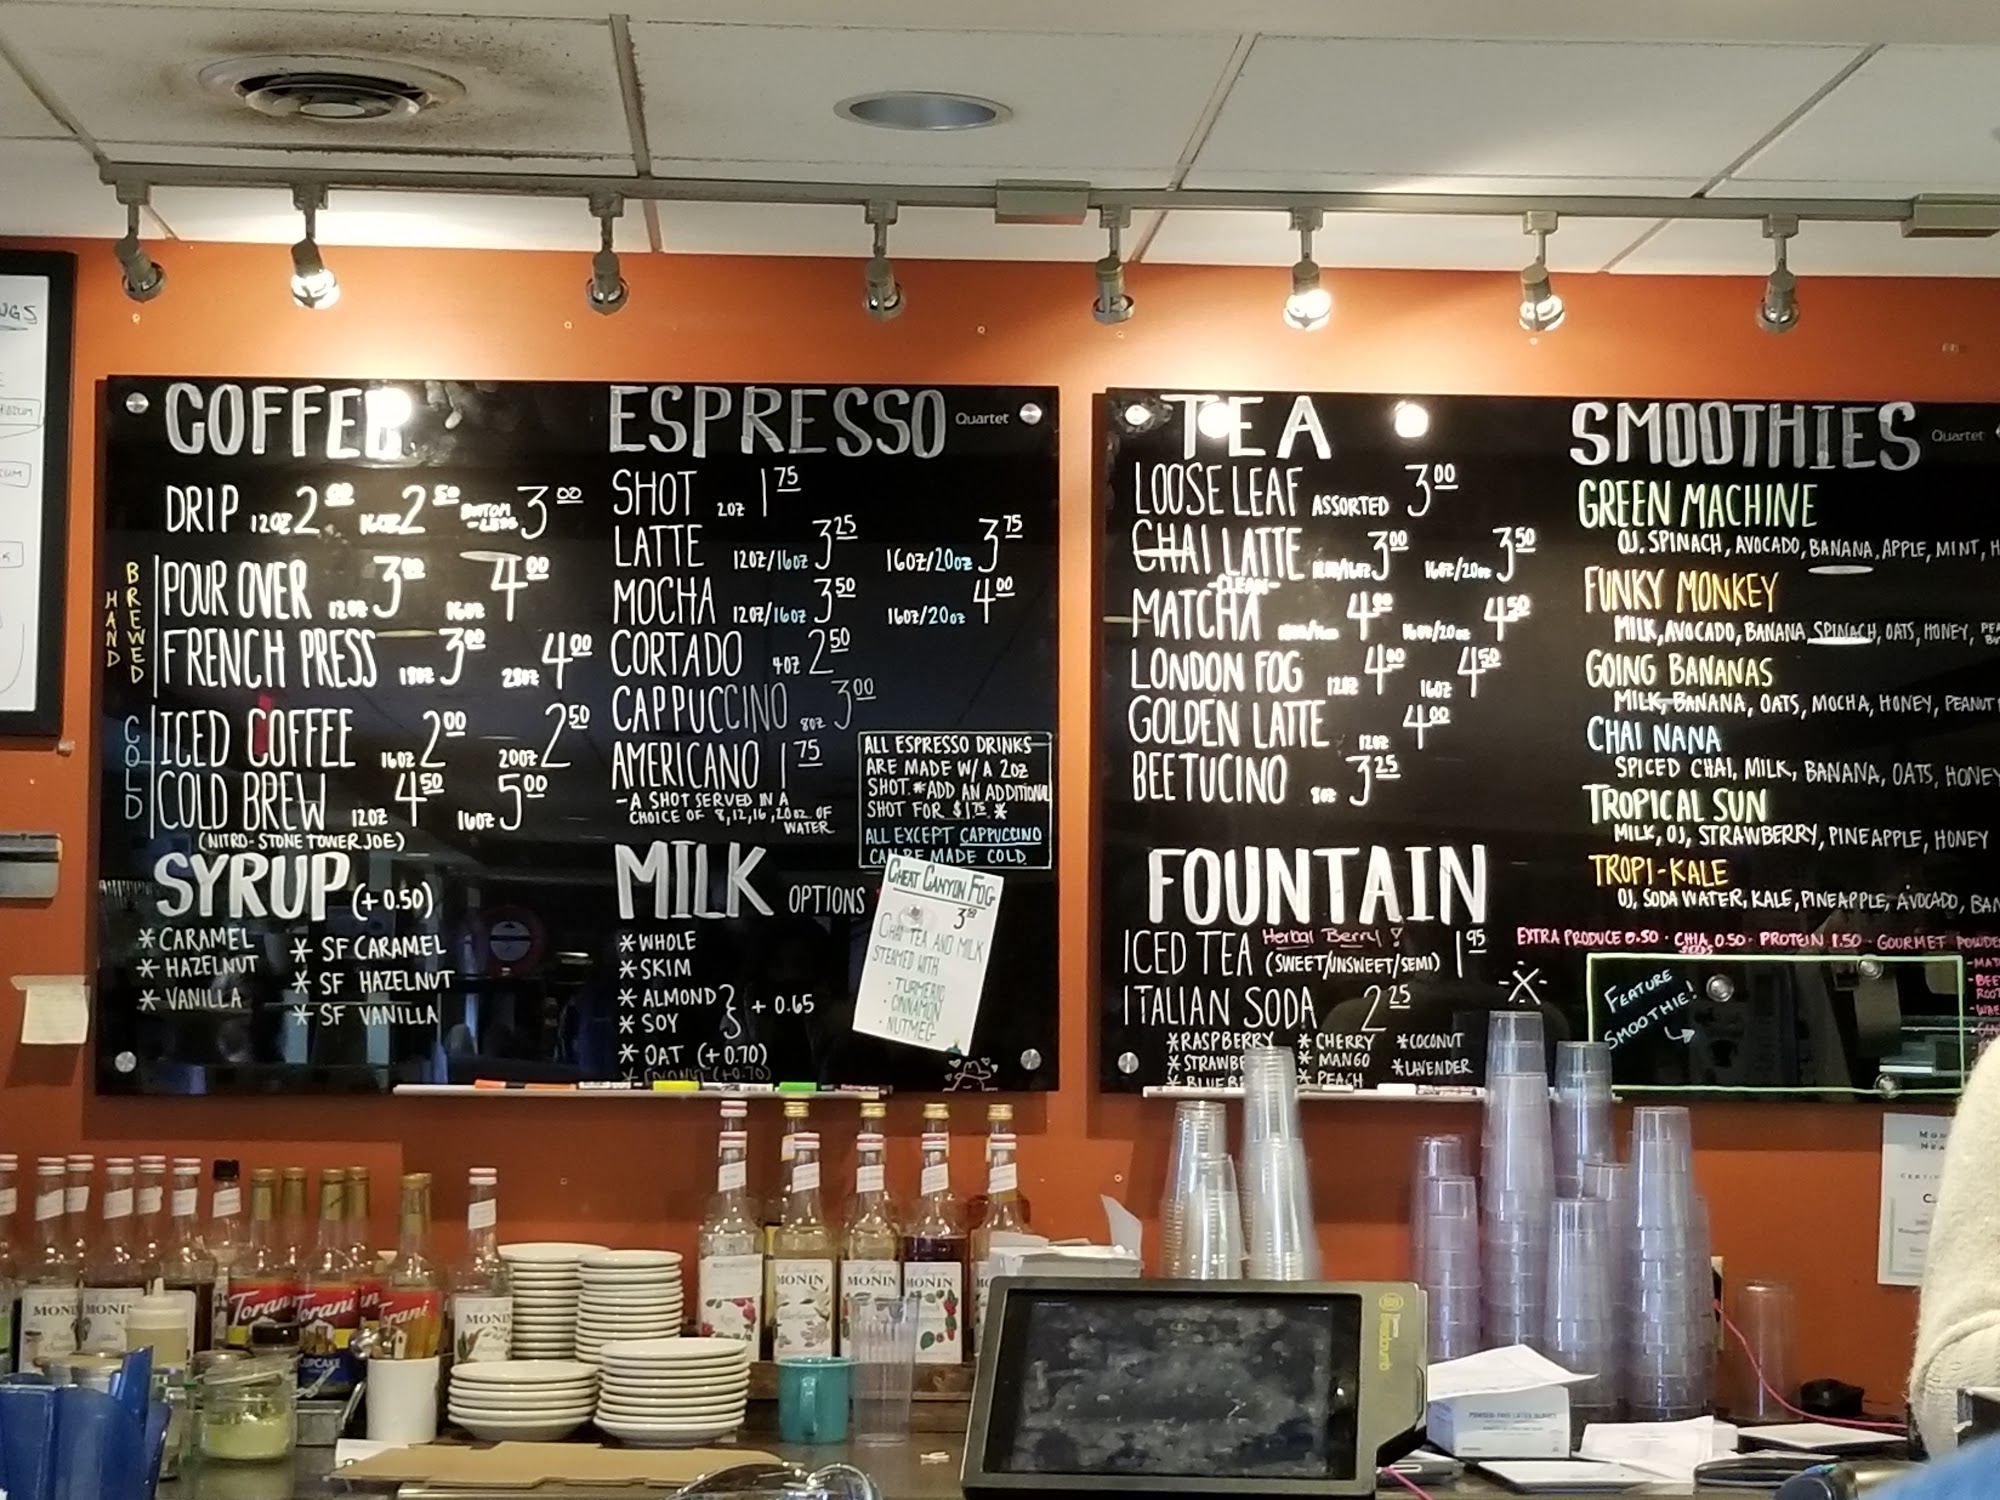 COFFEE
DRIP 12OZ 2.00 16OZ 2.50 BOTTOM-LESS 3.00
HAND BREWED
POUR OVER 12OZ 3.00 16OZ 4.00
FRENCH PRESS 3.00 4.00
COLD
ICED COFFEE 16OZ 2.00 20OZ 2.50
COLD BREW 12OZ 4.50 16OZ 5.00
(NITRO- STONE TOWER JOE)
SYRUP (+0.50)
* CARAMEL
* HAZELNUT
* VANILLA
* SF CARAMEL
* SF HAZELNUT
* SF VANILLA
ESPRESSO
Quartet
SHOT 2OZ 1.75
LATTE 12OZ/16OZ 3.25 16OZ/20OZ 3.75
MOCHA 12OZ/16OZ 3.50 16OZ/20OZ 4.00
CORTADO 4OZ 2.50
CAPPUCCINO 8OZ 3.00
AMERICANO 1.75
- A SHOT SERVED IN A
CHOICE OF 8,12,16,20OZ OF
WATER
ALL ESPRESSO DRINKS
ARE MADE W/ A 2OZ
SHOT. *ADD AN ADDITIONAL
SHOT FOR $1.75 *
ALL EXCEPT CAPPUCCINO
CAN BE MADE COLD.
MILK OPTIONS
* WHOLE
* SKIM
* ALMOND
* SOY + 0.65
* OAT (+0.70)
CHEAT CANYON FOG
3.50
CHAI TEA AND MILK
STEAMED WITH
• TURMERIC
• CINNAMON
• NUTMEG
TEA
LOOSE LEAF ASSORTED 3.00
CHAI LATTE 12OZ/16OZ 3.00 16OZ/20OZ 3.50
-CLEAN-
MATCHA 4.00 16OZ/20OZ 4.50
LONDON FOG 12OZ 4.00 16OZ 4.50
GOLDEN LATTE 12OZ 4.00
BEETUCINO 8OZ 3.25
FOUNTAIN
Herbal Berry!
ICED TEA (SWEET/UNSWEET/SEMI) 1.95
ITALIAN SODA 2.25
* RASPBERRY
* CHERRY
* COCONUT
* MANGO
* LAVENDER
* PEACH
SMOOTHIES
Quartet
GREEN MACHINE
OJ, SPINACH, AVOCADO, BANANA, APPLE, MINT,
FUNKY MONKEY
MILK, AVOCADO, BANANA, SPINACH, OATS, HONEY,
GOING BANANAS
MILK, BANANA, OATS, MOCHA, HONEY, PEANUT
CHAI NANA
SPICED CHAI, MILK, BANANA, OATS, HONEY
TROPICAL SUN
MILK, OJ, STRAWBERRY, PINEAPPLE, HONEY
TROPI-KALE
OJ, SODA WATER, KALE, PINEAPPLE, AVOCADO,
EXTRA PRODUCE 0.50 · CHIA SEEDS 0.50 · PROTEIN 1.50 · GOURMET
FEATURE
SMOOTHIE!
MONIN
MONIN
Torani
Torani
Torani
CUPCAKE
MONIN
MONIN
MONIN
MONIN